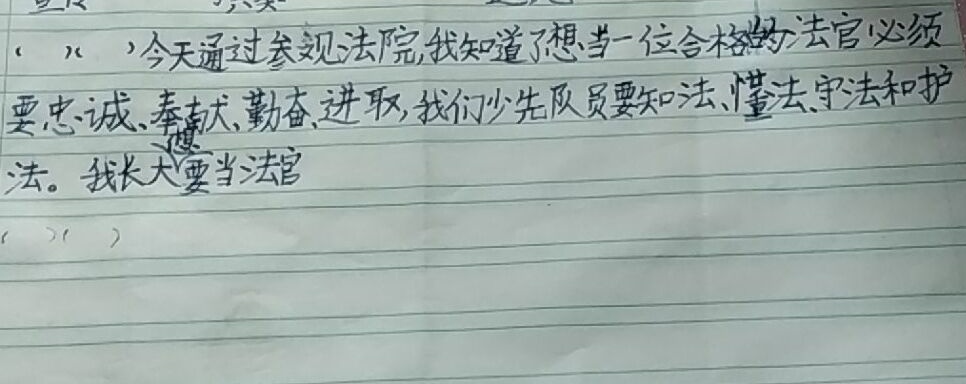 ( )( )今天通过参观法院,我知道了想当一位合格的法官必须
要忠诚、奉献、勤奋、进取,我们少先队员要知法、懂法、守法和护
法。我长大想要当法官
( )( )